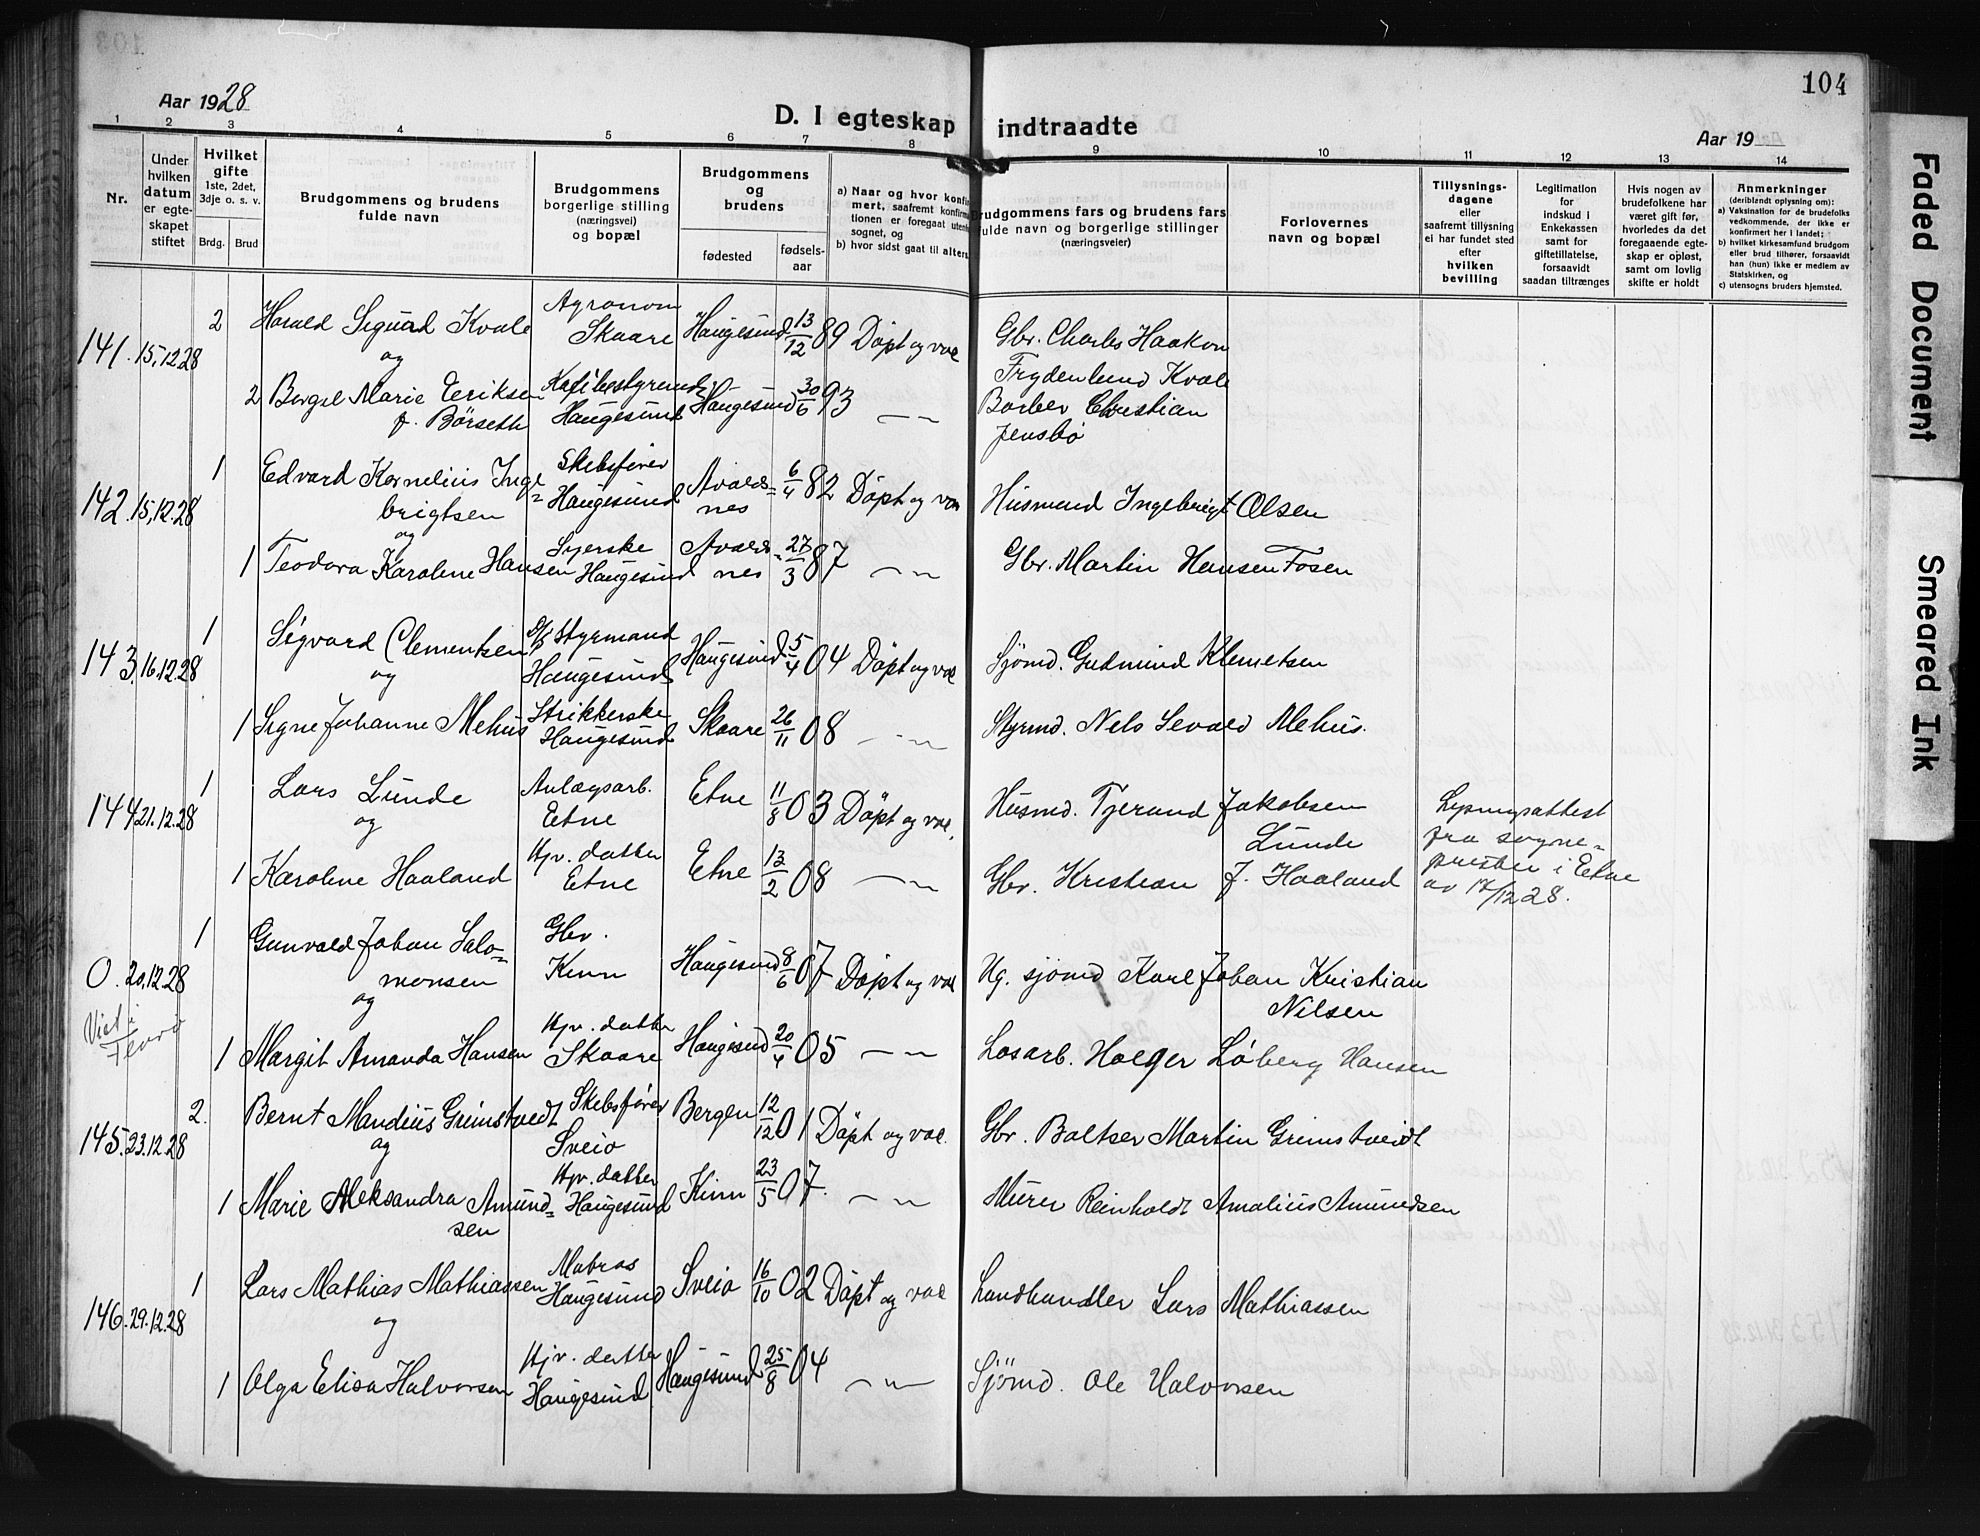 104
Aar 1928
D. I egteskap indtraadte
Aar 19
1 2 3 4 5 6 7 8 9 10 11 12 13 14
Nr.
Under
hvilken
datum
er egte-
skapet
stiftet
Hvilket
gifte
1ste, 2det,
3dje o. s. v.
Brdg. Brud
Brudgommens og brudens
fulde navn
Brudgommens
borgerlige stilling
(næringsvei)
og bopæl
Brudgommens
og
brudens
fødested
fødsels-
aar
a) Naar og hvor konfir
mert, saafremt konfirma
tionen er foregaat utenf
sognet, og
b) hvor sidst gaat til alters.
Brudgommens fars og brudens fars
fulde navn og borgerlige stillinger
(næringsveier)
Forlovernes
navn og bopæl
Tillysnings-
dagene
eller
saafremt tillysning
ei har fundet sted
efter
hvilken
bevilling
Legitimation
for
indskud i
Enkekassen
samt for
giftetillatelse,
forsaavidt
saadan tiltrænges
Hvis nogen av
brudefolkene har
været gift før,
hvorledes da det
foregaaende egte-
skap er opløst,
samt om lovlig
skifte er holdt
Anmerkninger
(deriblandt oplysning om):
a) Vaksination for de brudefolks
vedkommende, der ikke er
konfirmert her i landet;
b) hvilket kirkesamfund brudgom
eller brud tilhører, forsaavidt
han (hun) ikke er medlem av
Statskirken, og
c) utensogns bruders hjemsted.
141. 15.12.28 2 Harald Sigurd Kvale
og
Agronom
Skaare
Haugesund 13/12 89 Døpt og vac
Gbr. Charles Haakon
Frydenlund Kvale
2 Bergel Marie Eeriksen
f. Børseth
Kafébestyrerinde
Haugesund
Haugesund 30/6 93 — " —
Barber Christian
Jensbø
142. 15.12.28 1 Edvard Kornelius Inge=
brigtsen
og
Skibsfører
Haugesund
Avalds=
nes
6/4 82 Døpt og vac
Husmand Ingebrigt Olsen
1 Teodora Karoline Hansen
Syerske
Haugesund
Avalds=
nes
27/3 87 — " —
Gbr. Martin Hansen Fosen
143. 16.12.28 1 Sigvard Clementsen
og
Styrmand
Haugesund
Haugesund 5/4 04 Døpt og vac
Sjømd. Gudmund Klemetsen
1 Signe Johanne Mehus
Strikkerske
Haugesund
Skaare 26/11 08 — " —
Styrmd. Nels Sevald Mehus.
144 21.12.28 1 Lars Lunde
og
Anlægsarb.
Etne
Etne 11/8 03 Døpt og vac.
Husmd. Tjerand Jakobsen
Lunde
1 Karoline Haaland
Hjv. datter
Etne
Etne 13/2 08 — " —
Gbr. Kristian J. Haaland
Lysningsattest
fra sogne=
presten i Etne
av 17/12 28.
0. 20.12.28 1 Gunvald Johan Salo=
monsen
og
Gbr.
Kinn
Haugesund 8/6 07 Døpt og vac
Ug. sjømd Karl Johan Kristian
Nilsen
Viet i
1 Margit Amanda Hansen
Hjv. datter
Skaare
Haugesund 20/4 05 — " —
Losarb. Holger Løberg Hansen
145. 23.12.28 2. Bernt Mandius Grimstvedt
og
Skibsfører
Sveio
Bergen 12/12 01 Døpt og vac.
Gbr. Baltser Martin Grimstveidt
1 Marie Aleksandra Amund=
sen
Hjv. datter
Haugesund
Kinn 23/5 07. — " —
Murer Reinholdt Amalius Amundsen
146. 29.12.28 1 Lars Mathias Mathiassen
og
Matros
Haugesund
Sveio 16/10 02 Døpt og vac
Landhandler Lars Mathiassen
1 Olga Elisa Halvorsen
Hjv. datter
Haugesund
Haugesund 25/8 04 — " —
Sjömd. Ole Halvorsen
Faded Document
Smeared Ink